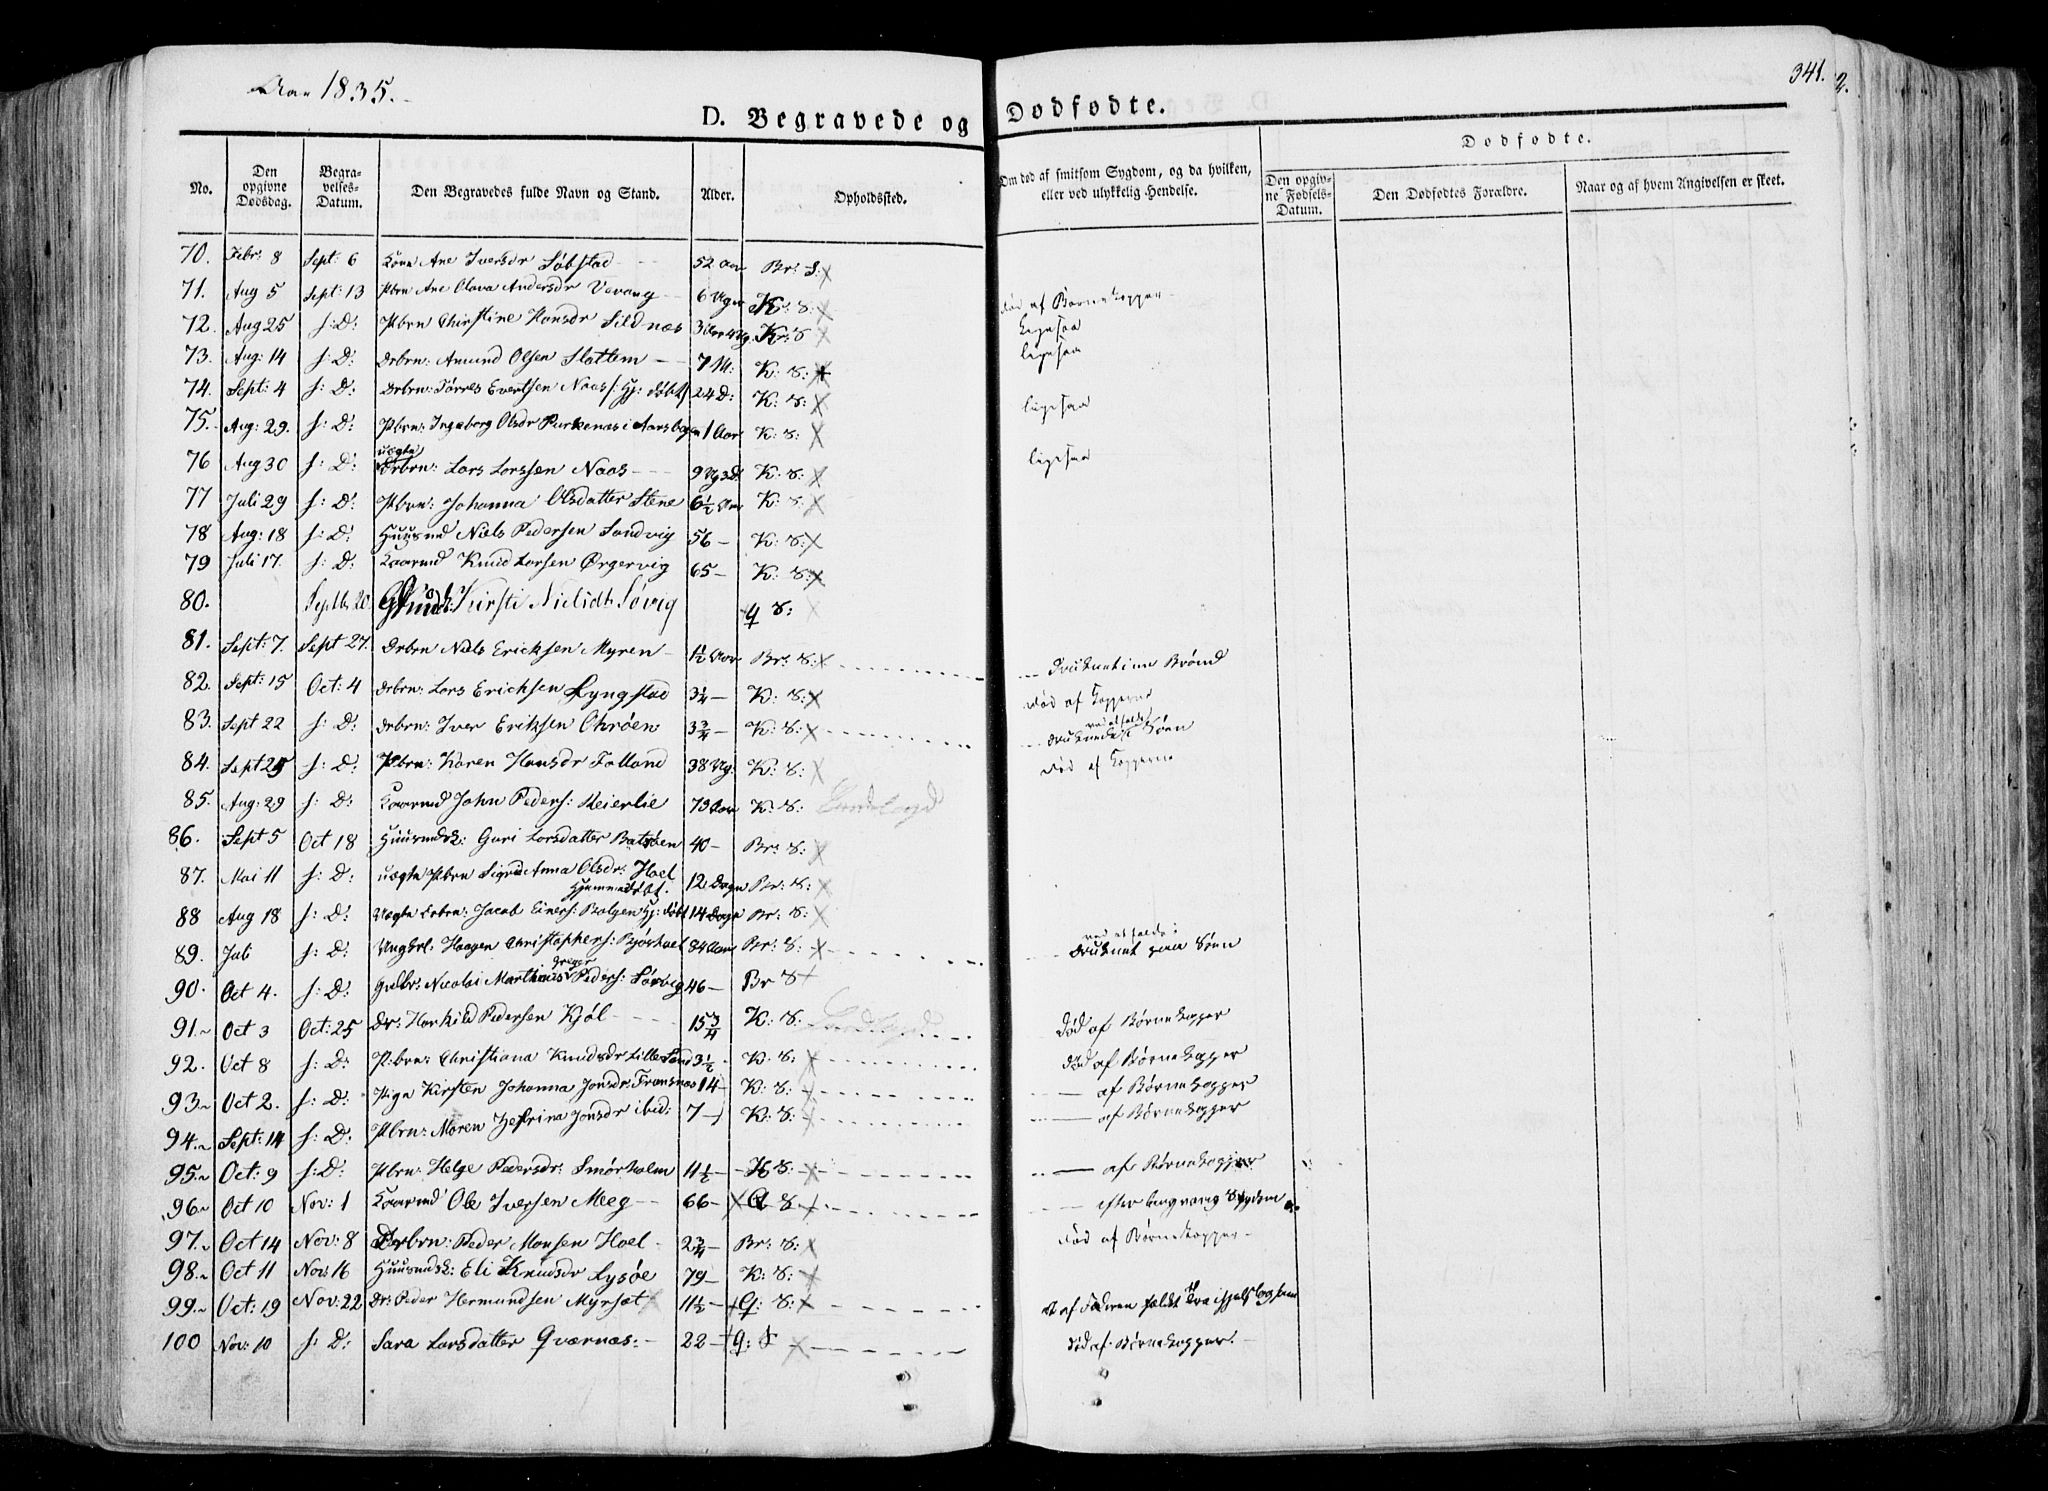 Aar 1835.
341.
2.
D. Begravede og Dødfødte.
No.
Den opgivne Dødsdag.
Begravelses-Datum.
Den Begravedes fulde Navn og Stand.
Alder.
Opholdssted.
Om død af smitsom Sygdom, og da hvilken, eller ved ulykkelig Hendelse.
Dødfødte.
Den opgivne Fødsels-Datum.
Den Dødfødtes Forældre.
Naar og af hvem Angivelsen er skeet.
70. Febr: 8 Sept: 6 Kone Ane Iversdr Søbstad 52 Aar Br: S:
71. Aug 5 Sept: 13 Pbrn Ane Olava Andersdr Vevang 6 Uger K: S: død af Børnekopper
72. Aug 25 s: D: Pbrn Chirstine Hansdr Sildnæs Kr: S ligesaa
73. Aug: 14 s: D: Drbrn: Amund Olsen Slattem 7 M: K: S: ligesaa
74. Sept: 4 s: D: Drbrn: Tørres Evertsen Naas /: Hj: døbt 24 D: K: S: ligesaa
75. Aug: 29. s: D: Pbrn: Ingeborg Olsdr Purkenæs i 1 Aar K: S:
76 Aug 30 s: D: uægte Drbrn: Lars Larssen Naas 9 Ug 3 D: K: S: ligesaa
77 Juli 29 s: D: Pbrn: Johanna Olsdatter Stene 6½ Aar K: S:
78 Aug: 18 s: D: Huusmd Niels Pedersen Sandvig 56 – K: S:
79 Juli 17. s: D: Kaarmd Knud Larsen Ørgervig 65 – K: S:
80. Septbr 20 Kirsti Nielsdt: Søvig q S:
81. Sept: 7. Sept 27. Drbrn Niels Ericksen Myren 1½ Aar Br: S: druknet i en Brønd
82. Sept: 15 Oct: 4 Drbrn: Lars Erichsen Lyngstad 3¼ – K: S: død af Kopperne
83. Sept 22 s: D: Drbrn: Iver Eriksen Ohrøen 3¾ – K: S: druknede ved at falde i Søen
84. Sept 25 s: D: Pbrn: Karen Hansdr Folland 38 Ug: K: S: død af Kopperne
85. Aug: 29 s: D: Kaarmd John Peders: Reierlie 73 Aar K: S:
86. Sept 5 Oct 18 Huusmdsk: Guri Larsdatter Batsøen 40 – Br: S:
87. Mai 11 s: D: uægte Pbrn Sigrid Anna Olsdr: Hoel Hjemmedøbt. 12 Dage Br: S:
88 Aug 18 s: D: Uægte Drbrn: Jacob Einers: Bolgen Hj: døbt 14 Dage Br: S:
89. Juli s: D: Ungkrl: Haagen Christophers: 84 Aar Br: S: druknet ved at falde i Søen
90. Oct 4. s: D: Nicolai Marthinus Peders: Sørvig 46 – Br S
91. Oct 3 Oct: 25 Dr: Harkild Pedersen Kjøl 15¾ K: S: død af Børnekopper
92. Oct 8 s: D: Pbrn: Christiana Knudsdr Lillesand 3½ K: S: død af Børnekopper
93. Oct 2. s: D: Pige Kirsten Johanna Jonsdr: 14 – K: S: – af Børnekopper
94. Sept: 14 s: D: Pbrn: Maren Jonsdr ibid: 7 – K: S: – af Børnekopper
95. Oct: 9 s: D: Pbrn: Helge Pedersdr: Smørholm 11½ – K S: – af Børnekopper
96. Oct 10 Nov: 1 Kaarmd Ole Iversen Meeg 66 – Q S efter langvarig Sygdom
97. Oct 14 Nov: 8 Drbrn: Peder Monsen Hoel 2¾ – Br: S: død af Børnekopper –
98. Oct 11 Nov: 16 Huusmdsk: Eli Knudsdr Lysøe 79 – K: S:
99. Oct: 19 Nov: 22 Dr: Peder Hermundsen Myrsæt 11½ – Q: S: af Faderen
100 Nov: 10 s: D: Sara Larsdatter Qværnæs: – 22 – q: S død af Børnekopper.